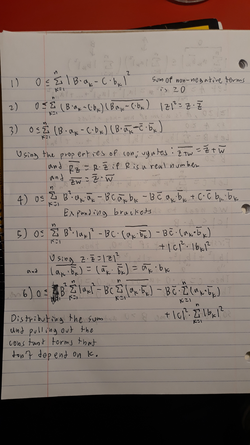 1) 0 ≤ Σ_{k=1}^{n} |B·a_k − C·b_k|² Sum of non-negative terms is ≥ 0
2) 0 ≤ Σ_{k=1}^{n} (B·a_k − C b_k)(\overline{B a_k − C b_k}) |z|² = z·z̄
3) 0 ≤ Σ_{k=1}^{n} (B·a_k − C·b_k)(B·ā_k − C̄·b̄_k)
Using the properties of conjugates: \overline{z+w} = z̄ + w̄
and \overline{Rz} = R·z̄ if R is a real number
and \overline{zw} = z̄·w̄
4) 0 ≤ Σ_{k=1}^{n} B²·a_k ā_k − BC̄ a_k b̄_k − BC ā_k b_k + C·C̄ b_k b̄_k
Expanding brackets
5) 0 ≤ Σ_{k=1}^{n} B²·|a_k|² − BC·(ā_k b_k) − BC̄·(a_k·b̄_k)
+ |C|²·|b_k|²
Using z·z̄ = |z|²
and
6) 0 ≤ B² Σ_{k=1}^{n} |a_k|² − BC Σ_{k=1}^{n} (ā_k b_k) − BC̄·Σ_{k=1}^{n} (a_k b̄_k)
+ |C|²·Σ_{k=1}^{n} |b_k|²
Distributing the sum
and pulling out the
constant terms that
don't depend on k.